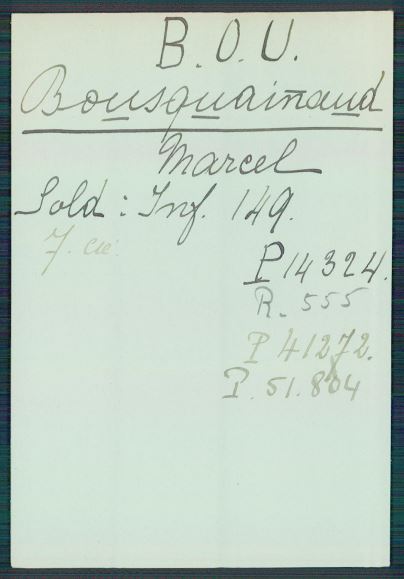 B.O.U.
Bousquainaud
Marcel
Sold: Inf. 149.
7. cie.
P 14324.
R. 555
P 41272.
P. 51.804